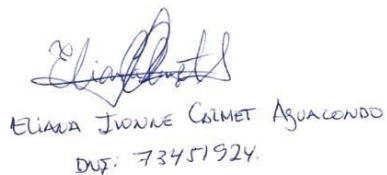 ELIANA IVONNE CALMET AGUACONDO
DNI: 73451924.